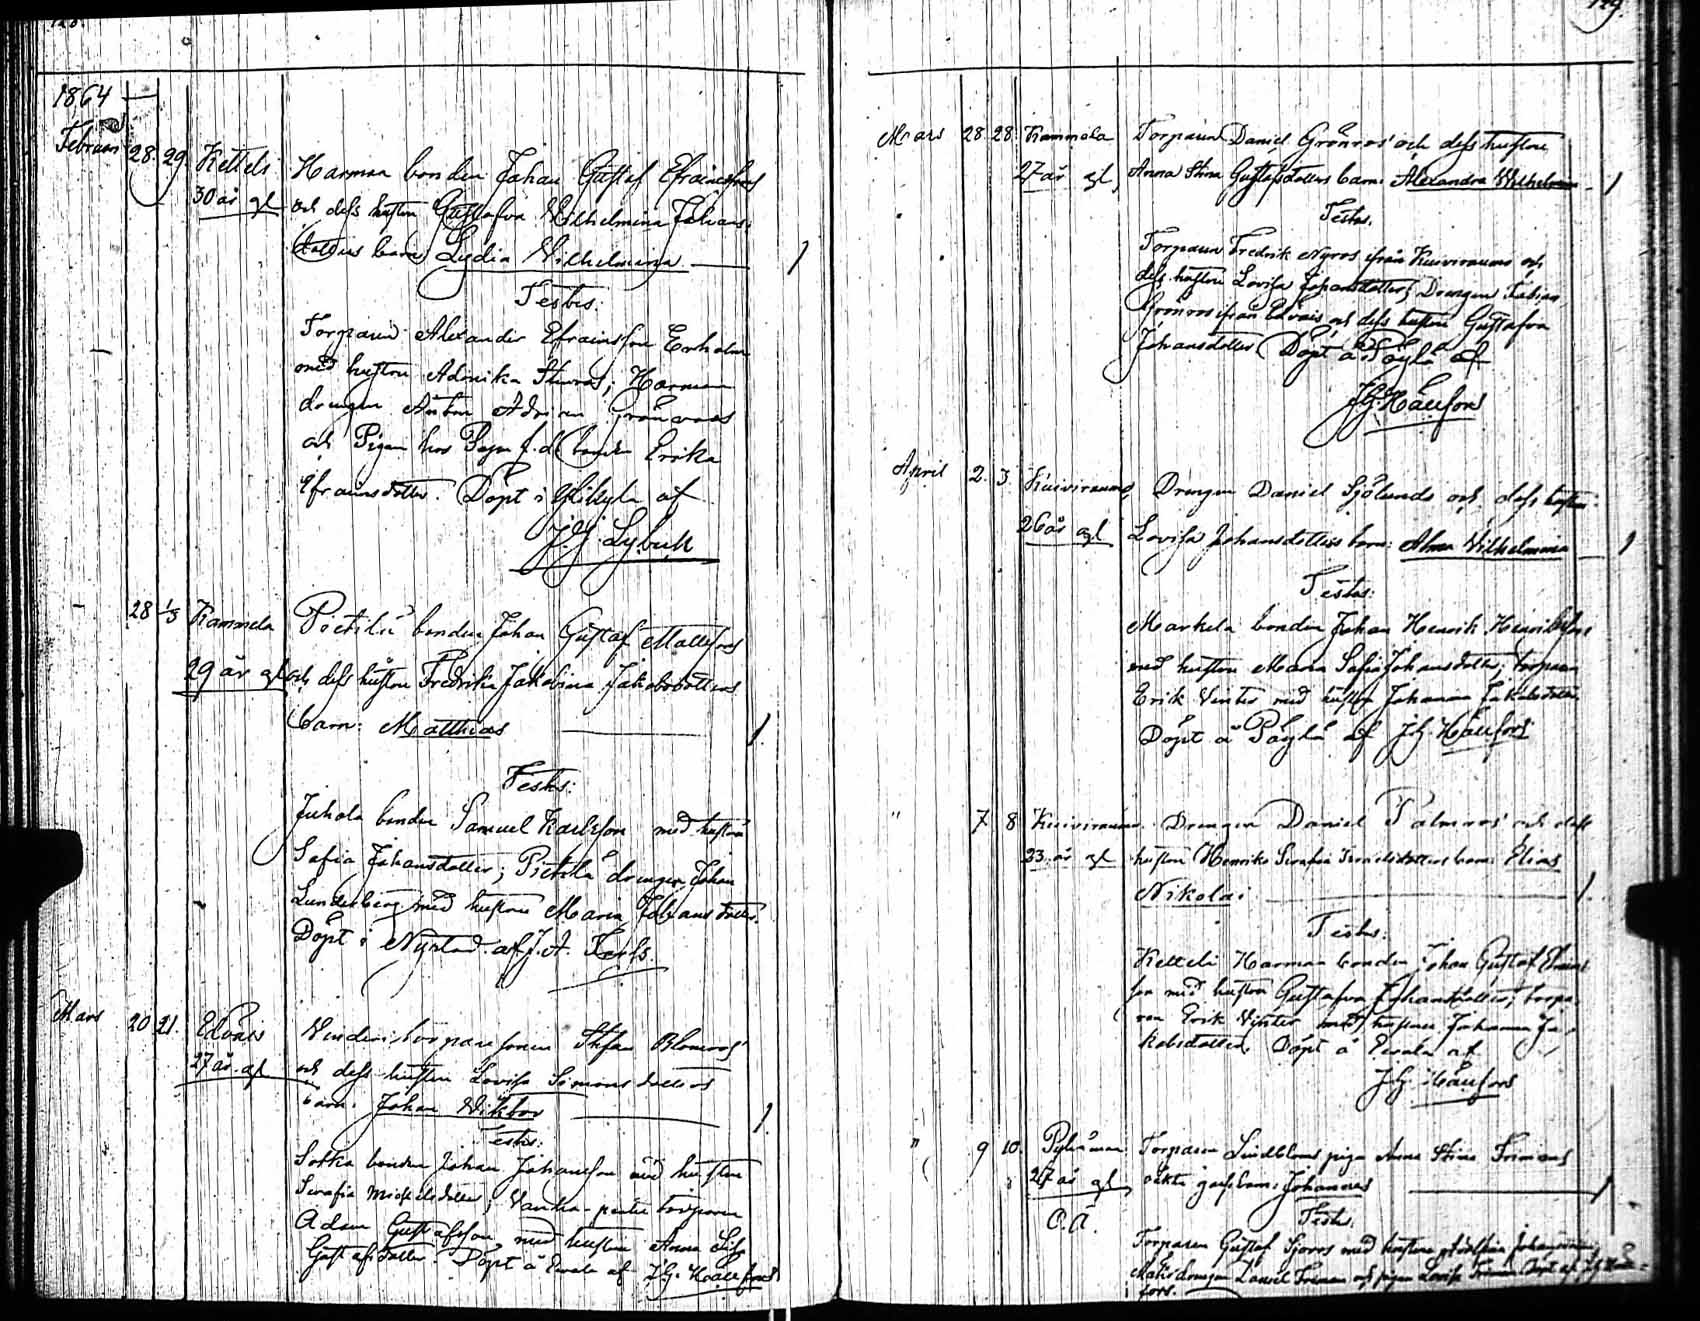 128.
1864
Februari 28. 29. Ketteli Harman bonden Johan Gustaf Efraimssons
30 år gl och dess hustru Gustafva Wilhelmina Johans-
dotters barn Lydia Wilhelmina 1
Testes:
Torparen Alexander Efraimsson Enholm
med hustru Adonika ; Harman
drengen Anton Grönroos
och Pigan f.d. bonden Erika
Efraimsdotter. Döpt i af
J.G. Lybeck
28 1/3 Kammela Pietilä bonden Johan Gustaf Mattssons
29 år gl och dess hustru Fredrika Jakobina Jakobsdotters
barn: Matthias 1.
Testes:
Juhola bonden Samuel Karlsson med hustru
Sofia Johansdotter; Pietilä drengen Johan
Lunderberg med hustru Maria Johansdotter.
Döpt i Nystad af J. A.
Mars 20 21. Edvais torparesonen Stefan Blomroos'
27 år gl och dess hustru Lovisa Simonsdotters
barn: Johan Wiktor 1.
Testes:
Sotka bonden Johan Johansson med hustru
Serafia Mickelsdotter; torparen
Adam Gustafsson med hustru Anna
Gustafsdotter. Döpt å af J.G. Hällfors
129.
Mars 28. 28. Kammela Torparen Daniel Grönroos' och dess hustru
27 år gl Anna Stina Gustafsdotters barn: Alexandra Wilhelmina 1
Testes.
Torparen Fredrik Nyroos ifrån Kuiviraumo och
dess hustru Lovisa Johansdotter; Drengen Fabian
Grönroos ifrån Edvais och dess hustru Gustafva
Johansdotter. Döpt å af
J.G. Hällfors
April 2. 3. Kuiviraumo Drengen Daniel Sjölunds och dess hustru
26 år gl Lovisa Johansdotters barn: Alma Wilhelmina 1
Testes:
Markula bonden Johan Henrik Henriksson
med hustru Maria Sofia Johansdotter; torparen
Erik Vinter med hustru Johanna Jakobsdotter.
Döpt å af J.G. Hällfors
" 7 8 Kuiviraumo. Drengen Daniel Palmroos' och dess
23 år gl hustru Henrika Serafia barn: Elias
Nikolai 1.
Testes:
Ketteli Harman bonden Johan Gustaf Efraims-
son med hustru Gustafva Johansdotter; torpa-
ren Erik Vinter med hustru Johanna Ja-
kobsdotter. Döpt å af
J.G. Hällfors
" 9 10. Torparen Lindbloms piga Anna Stina
27 år gl oäkta gossebarn: Johannes 1
O.Ä. Testes.
Torparen Gustaf Sjöros med hustru Johansdotter;
drengen Daniel och pigan Lovisa Döpt af J.G. Häll-
fors.